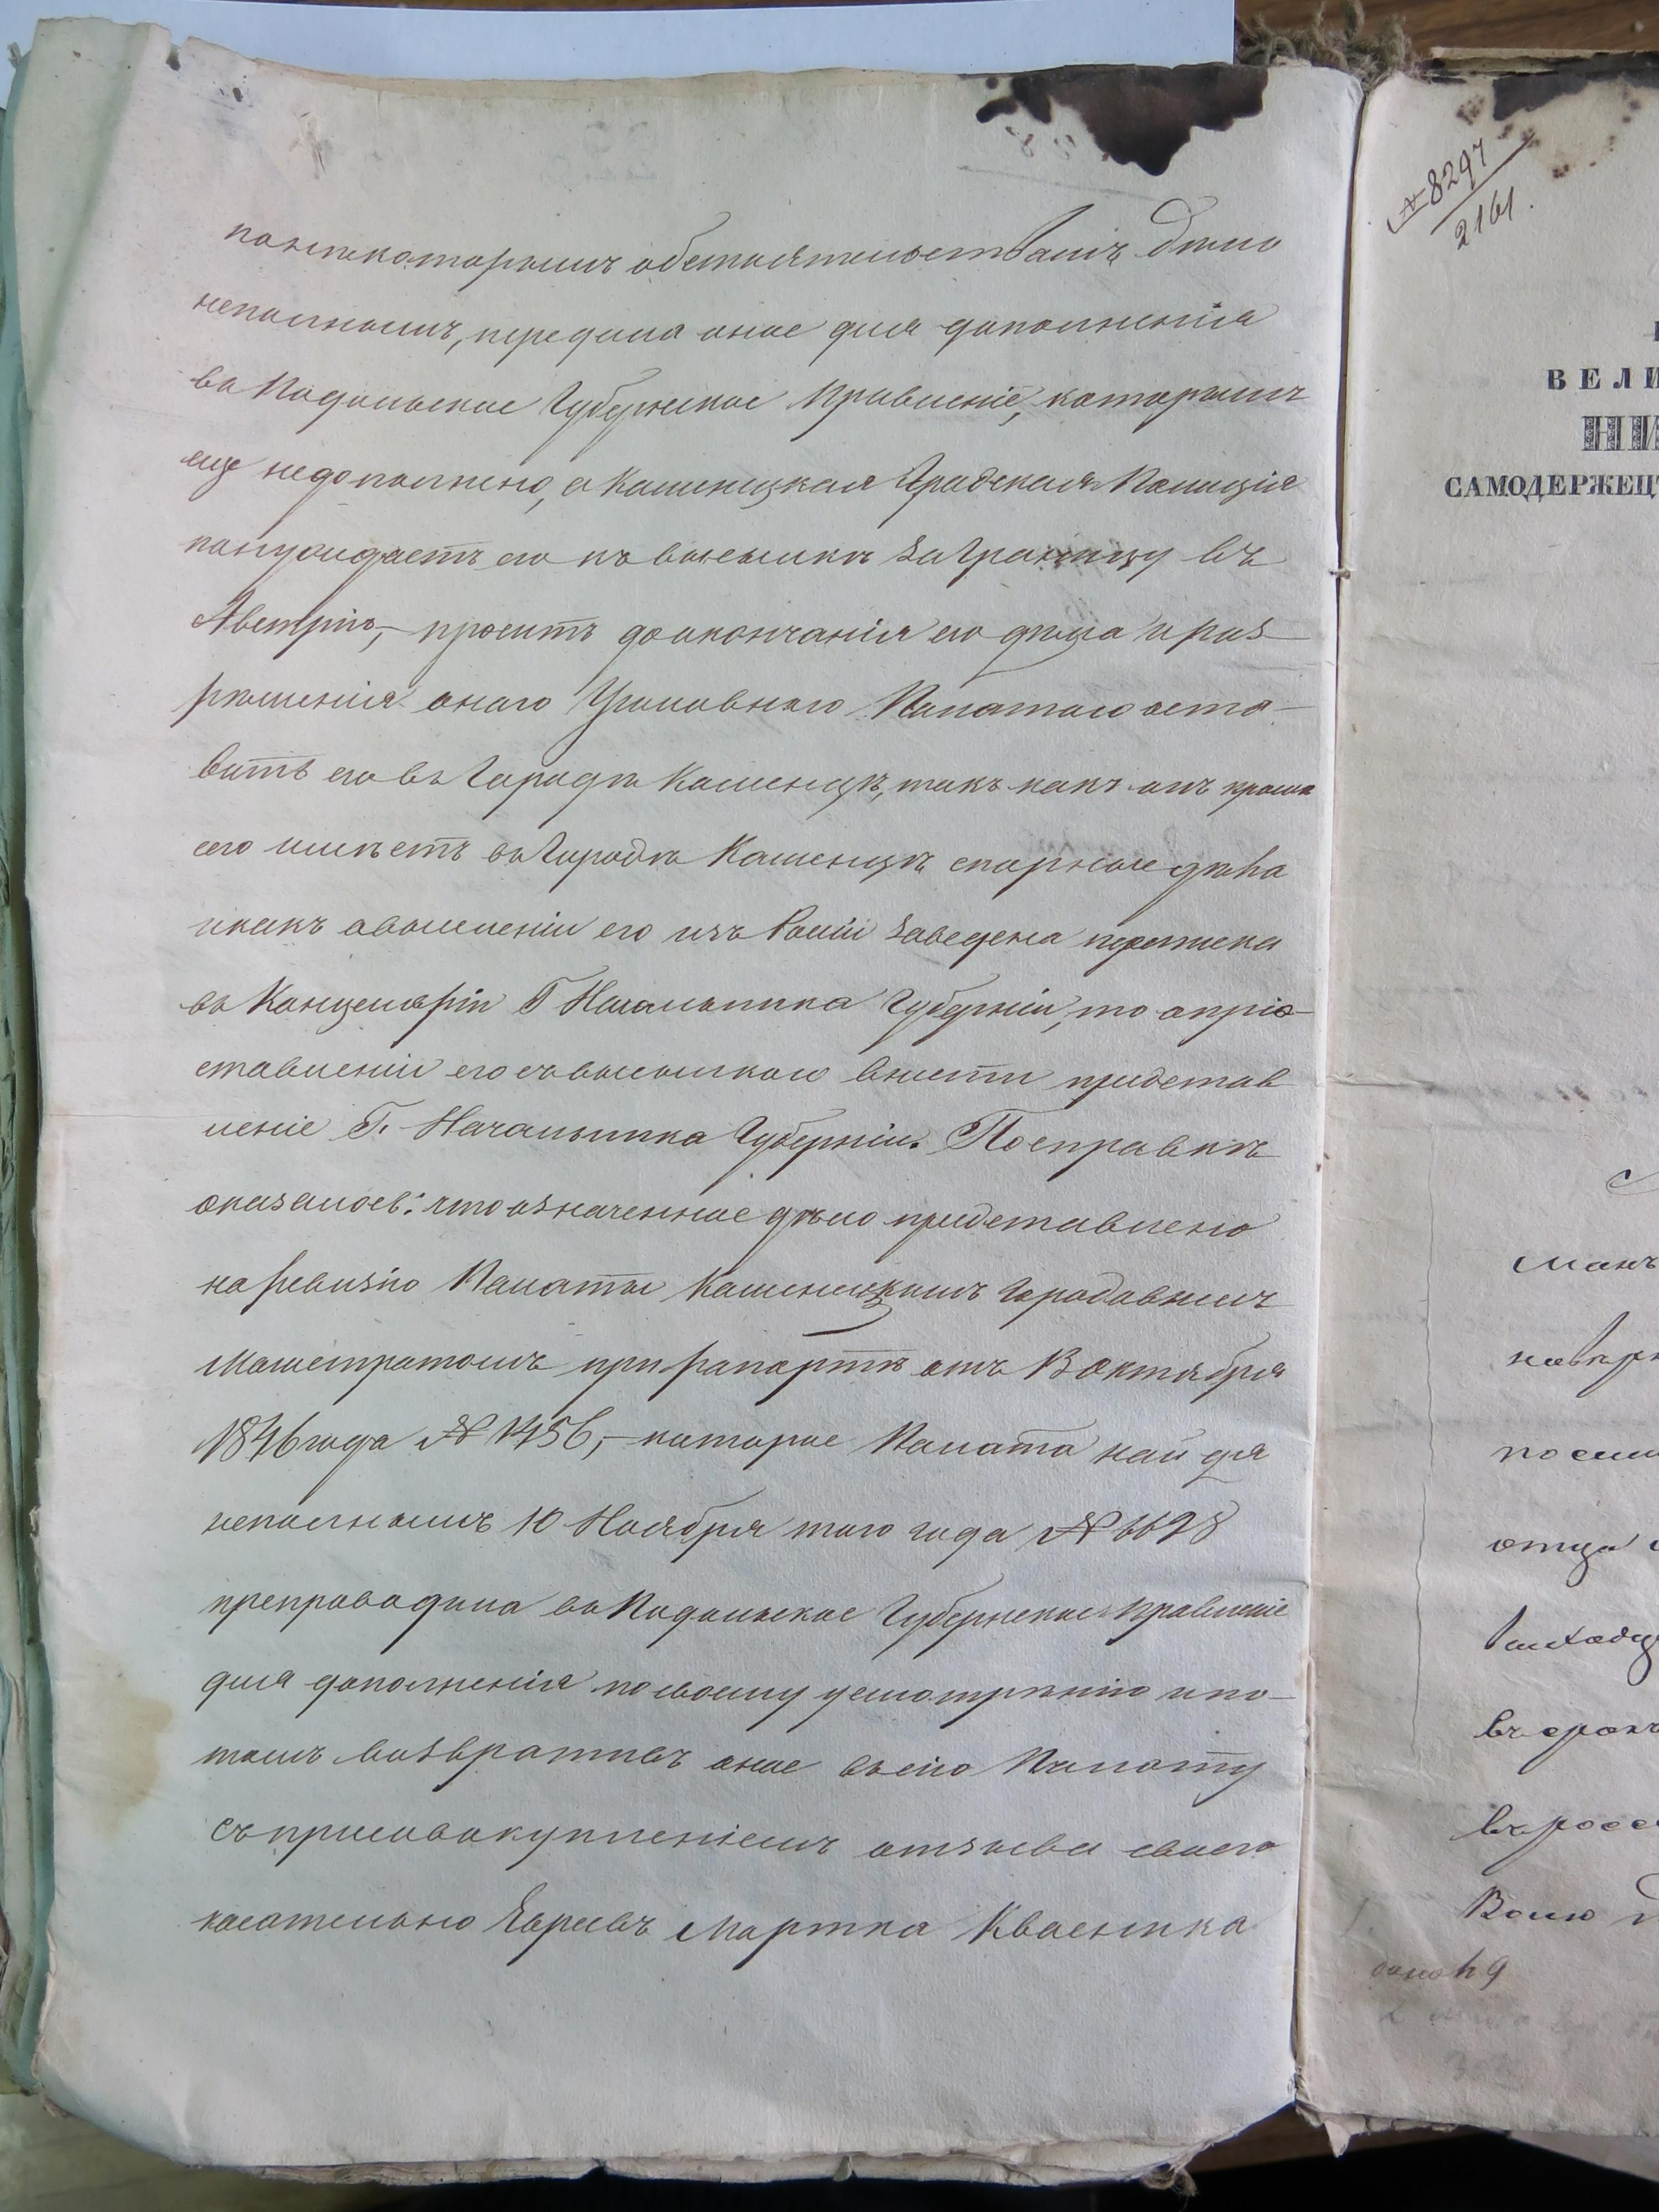 понѣкоторымъ обстоятельствамъ дѣло
неполнымъ, передала оное для дополненія
въ Подольское Губернское Правленіе, которымъ
еще недополнено, а Каменецкая Градская Полиція
понуждаетъ его къ высылкѣ заграницу въ
Австрію,– проситъ до окончанія его дѣла и раз–
рѣшенія онаго Уголовною Палатою оста–
вить его въ Городѣ Каменцѣ, такъ какъ онъ кромѣ
сего имѣетъ въ Городѣ Каменцѣ спорные дѣла
и какъ о высылкѣ его изъ Росіи заведена переписка
въ Канцеляріи Г Начальника Губерніи, то опріо–
ставленіи его съ высылкою внести представ
леніе Г. Начальника Губерніи. По справкѣ
оказалось: что означенное дѣло представлено
на ревизію Палаты Каменецкимъ Городовымъ
Магистратомъ при рапортѣ отъ 13 Октября
1846 года № 1456,– которое Палата найдя
неполнымъ 10 Ноября того года № 6628
препроводила въ Подольское Губернское Правленіе
для дополненія по своему усмотрѣнію и по–
томъ возвратить оное въ сію Палату
съ присовокупленіемъ отзыва своего
касательно Евреевъ Мортка Квасника
№ 8297
2161.
ВЕЛИ
НИ
САМОДЕРЖЕЦ
отца
въ срокъ
Волю